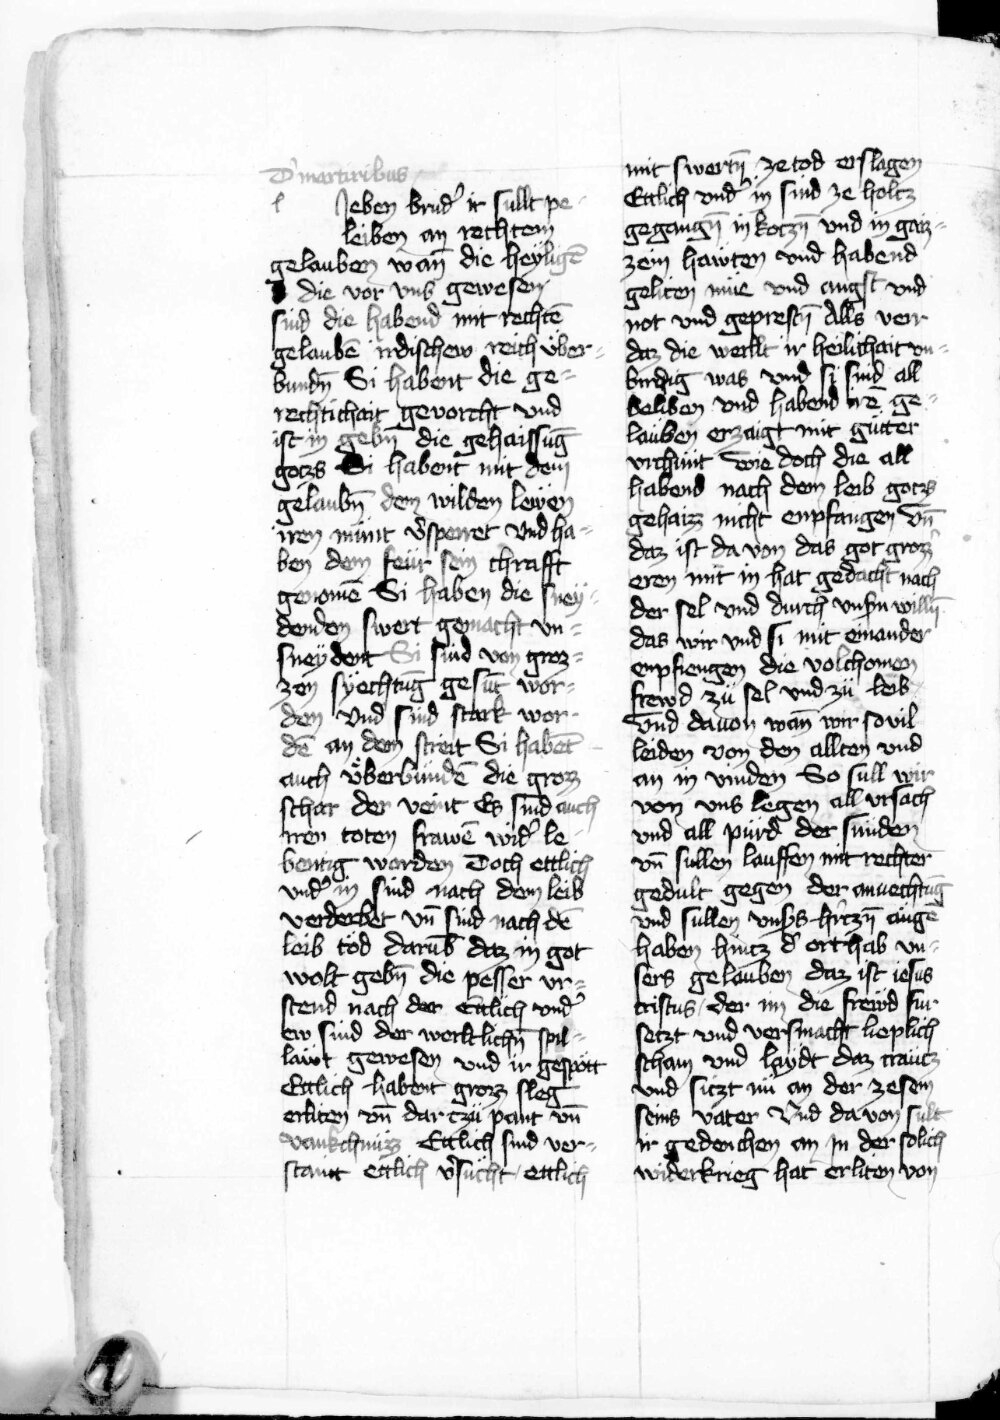 D' martiribus
l Ieben brud' ir sullt pe-
leiben an rechtem
gelauben wan̄ die heyligē
die vor vns gewesen
sind die habend mit rechtē
gelaubē irdischew reich über-
bundn̄ Si habent die ge-
rechtichait gevorcht vnd
ist in gebn̄ die gehaissūg
gotzs Si habent mit dem
gelaubn̄ dem wilden lewen
iren munt v'sperret vnd ha-
ben dem feur sein chrafft
genomē Si haben die sney-
denden swert gemacht vn-
sneydent Si sind von groz-
zen syechtūg gesūt wor-
dem vnd sind stark wor-
dē an dem streit Si habēt
auch überbundē die grozz
schar der veint Es sind auch
iren toten frawē wid' le-
bentig warden Doch ettlich
vnd' in sind nach dem leib
verderbet vn̄ sind nach dē
leib töd darūb daz in got
wolt gebn̄ die pesser ur-
stend nach der Ettlich vnd'
ew sind der werltlichn̄ spil-
läwt gewesen vnd ir gespött
Ettlich habent grozz sleg
erliten vn̄ dar tzü pant vn̄
vankchnuzz Ettlich sind ver-
stant ettlich v'sücht / ettlich
mit swertn̄ ze tod erslagen
Ettlich vnd' in sind ze holtz
gegangn̄ in kotzn̄ vnd in gaiz-
zein hawten vnd habend
geliten müe vnd angst vnd
not vnd geprestn̄ Alls verr
daz die werllt ir heilichait vn-
birdig was vnd si sind all
beliben vnd habend irē ge-
lauben erzaigt mit gütter
vrchunt wie doch die all
habend nach dem leib gotzs
gehaizz nicht enpfangen Vn̄
daz ist da von das got grozz'
eren mit in hat gedacht nach
der sel vnd durch vnsn̄ willn̄
das wir vnd si mit einander
enpfiengen die volchomen
frewd zü sel vnd zü leib
Vnd dauon wan̄ wir so vil
leiden von den allten vnd
an in vinden So sull wir
von vns legen all vrsach
vnd all pürd der sunden
vn̄ sullen lauffen mit rechter
gedult gegen der anuechtūg
vnd sullen vnsers hrczn̄ auge
haben hintz d' orthab vn-
sers gelauben daz ist iesus
cristus / der im die frewd fur
setzt vnd versmacht lieplich
scham vnd laydt daz crautz
vnd sitzt nu an der zesem
seins vater Vnd da von sult
ir gedenchen an in der solich
widerkrieg hat erliten von